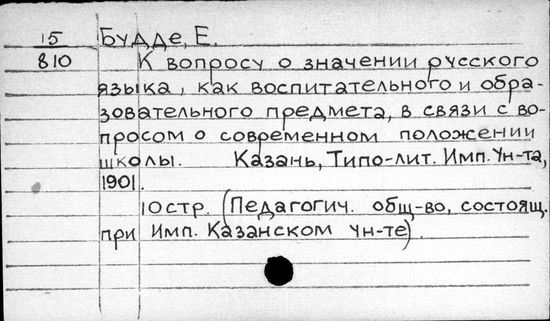 15 Будде, Е.
810 К вопросу о значении русского
языка, как воспитательного и обра-
зовательного предмета, в связи с во-
просом о современном положении
школы. Казань, Типо-лит. Имп. Ун-та,
1901.
10 стр. (Педагогич. общ-во, состоящ.
при Имп. Казанском ун-те).